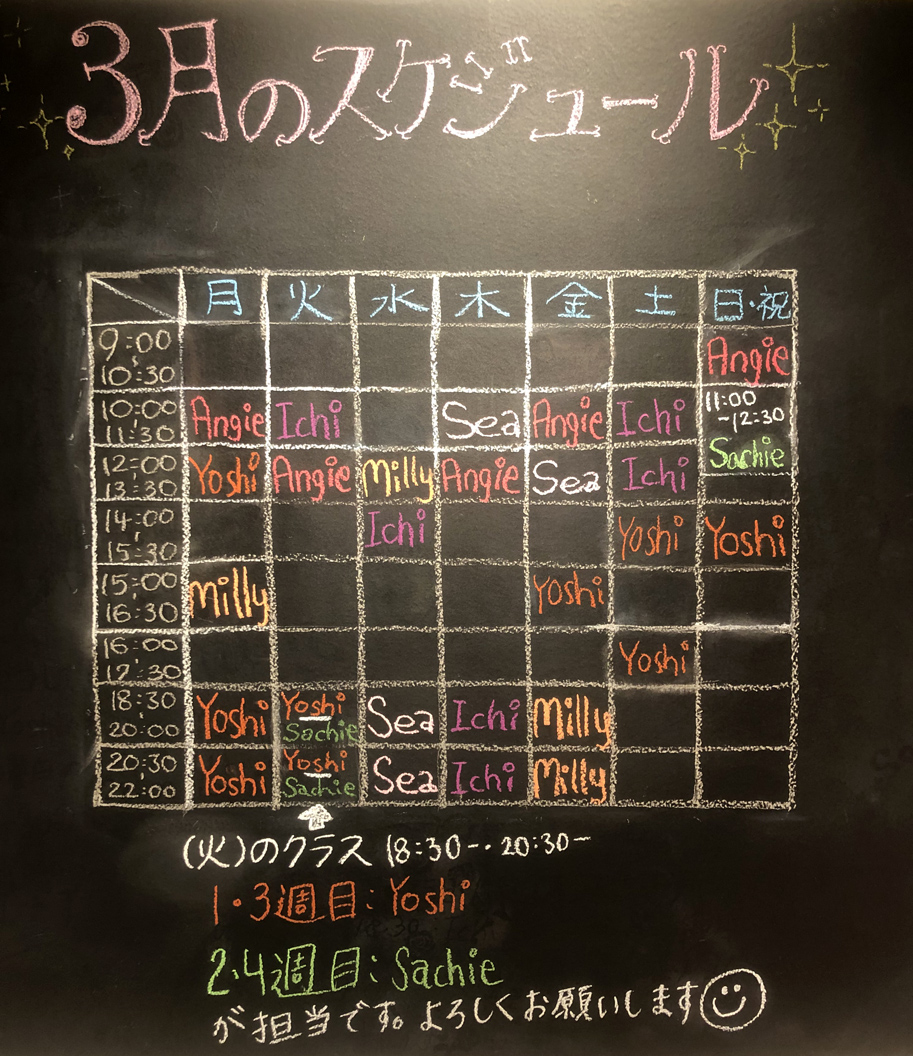 3月のスケジュール
月 火 水 木 金 土 日・祝
9:00 10:30 Angie
10:00 11:30 Angie Ichi Sea Angie Ichi 11:00 ~12:30 Sachie
12:00 13:30 Yoshi Angie Milly Angie Sea Ichi
14:00 15:30 Ichi Yoshi Yoshi
15:00 16:30 Milly Yoshi
16:00 17:30 Yoshi
18:30 20:00 Yoshi Yoshi Sachie Sea Ichi Milly
20:30 22:00 Yoshi Yoshi Sachie Sea Ichi Milly
(火)のクラス 18:30~・20:30~
1・3週目:Yoshi
2・4週目:Sachie
が担当です。よろしくお願いします